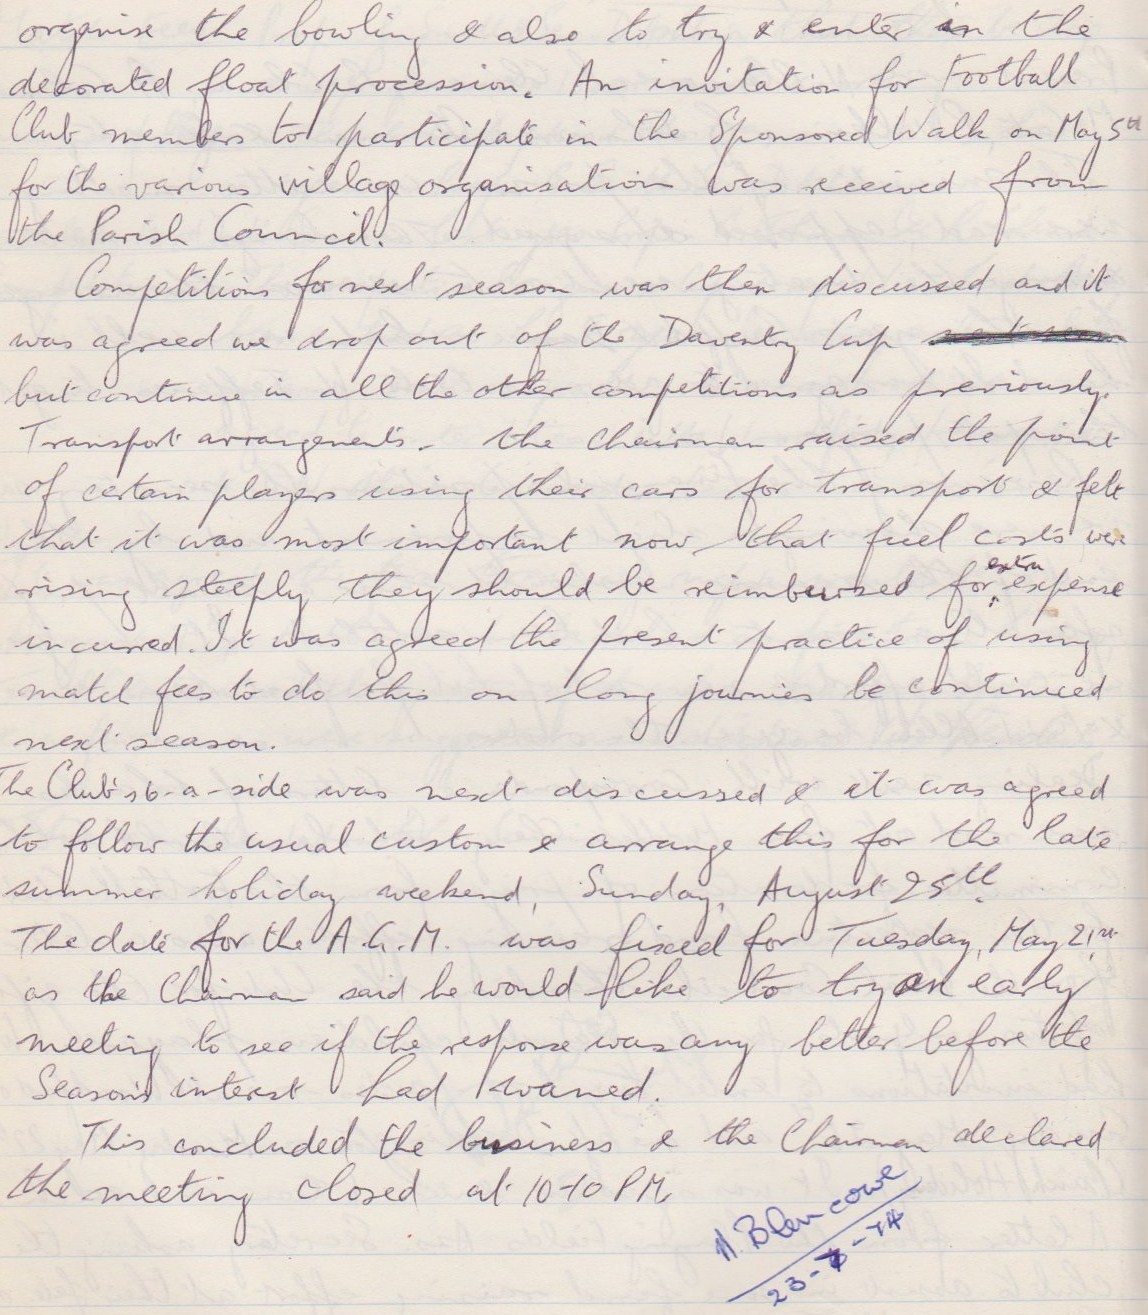 organise the bowling & also to try & enter in the
decorated float procession. An invitation for Football
Club members to participate in the Sponsored Walk on May 5th
for the various village organisation was received from
the Parish Council.
Competitions for next season was then discussed and it
was agreed we drop out of the Daventry Cup
but continue in all the other competitions as previously.
Transport arrangements. The Chairman raised the point
of certain players using their cars for transport & felt
that it was most important now that fuel costs were
rising steeply they should be reimbursed for extra expense
incurred. It was agreed the present practice of using
match fees to do this on long journies be continued
next season.
The Club's 6-a-side was next discussed & it was agreed
to follow the usual custom & arrange this for the late
summer holiday weekend, Sunday, August 25th.
The date for the A.G.M. was fixed for Tuesday, May 21st
as the Chairman said he would like to try an early
meeting to see if the response was any better before the
Season's interest had waned.
This concluded the business & the Chairman declared
the meeting closed at 10-10 PM.
N. Blencowe